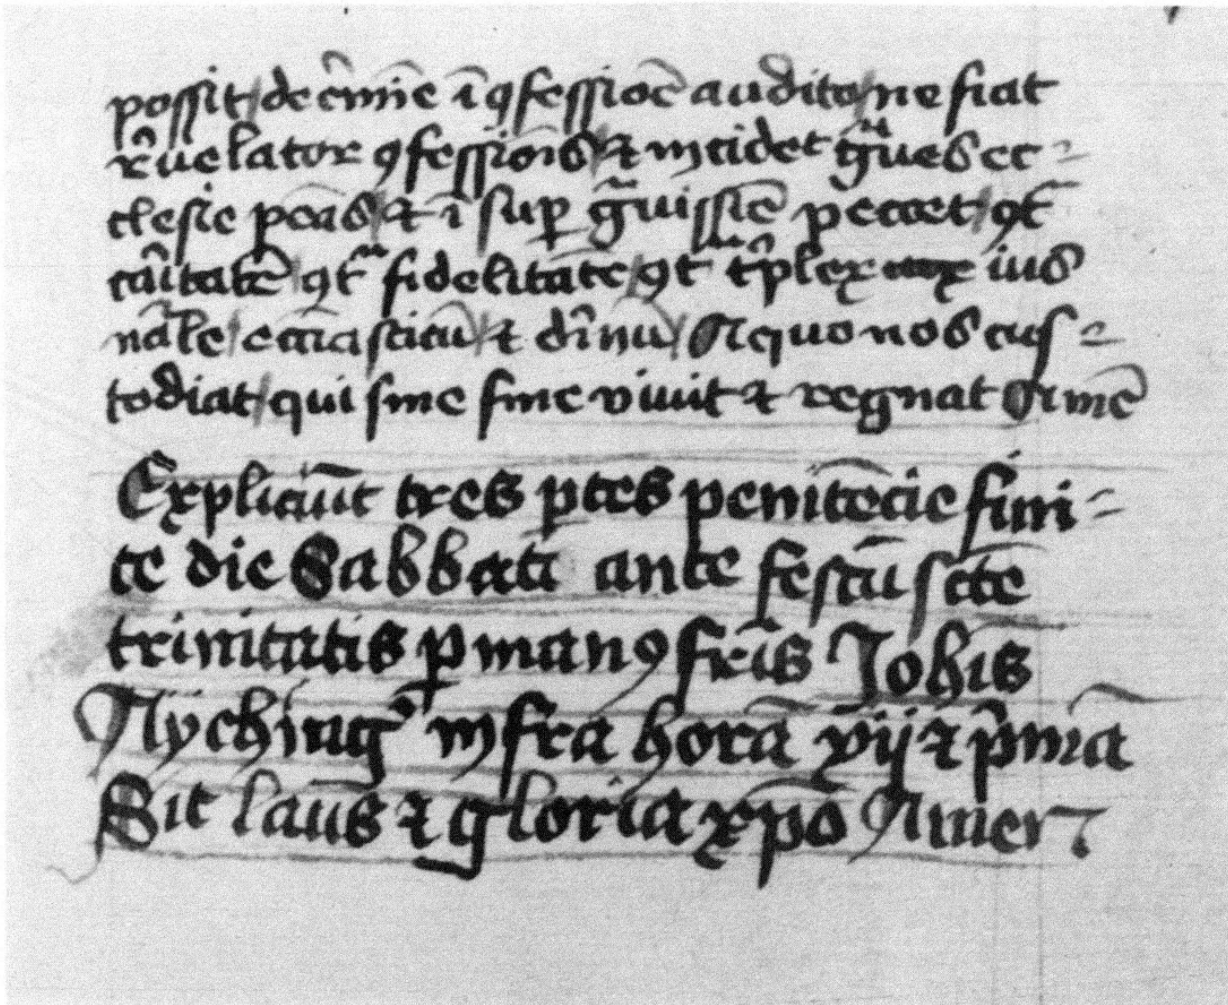 possit / de c̄mīe ī ꝯfessiōe audito / ne fiat
r̄uelator ꝯfessiōīs / ⁊ incidet gͣues ec=
clesie penas / ⁊ ī sup gͣuissīe peccet / ꝯtͣ
caͥtatē / ꝯtͣ fidelitatē / ꝯtͣ tͥplex ius
nāle / ecciasticū / ⁊ diͥnū / A quo nos cus=
todiat / qui sine fine viuit ⁊ regnat Amē
Expliciūt tres ptes penitēcie fini=
te die Sabbati ante festū scte
trinitatis ꝑ manꝰ fris Johis
Nyching᾽ infra horā vij ⁊ pͥmā
Sit laus ⁊ gloria xp̄o Amen